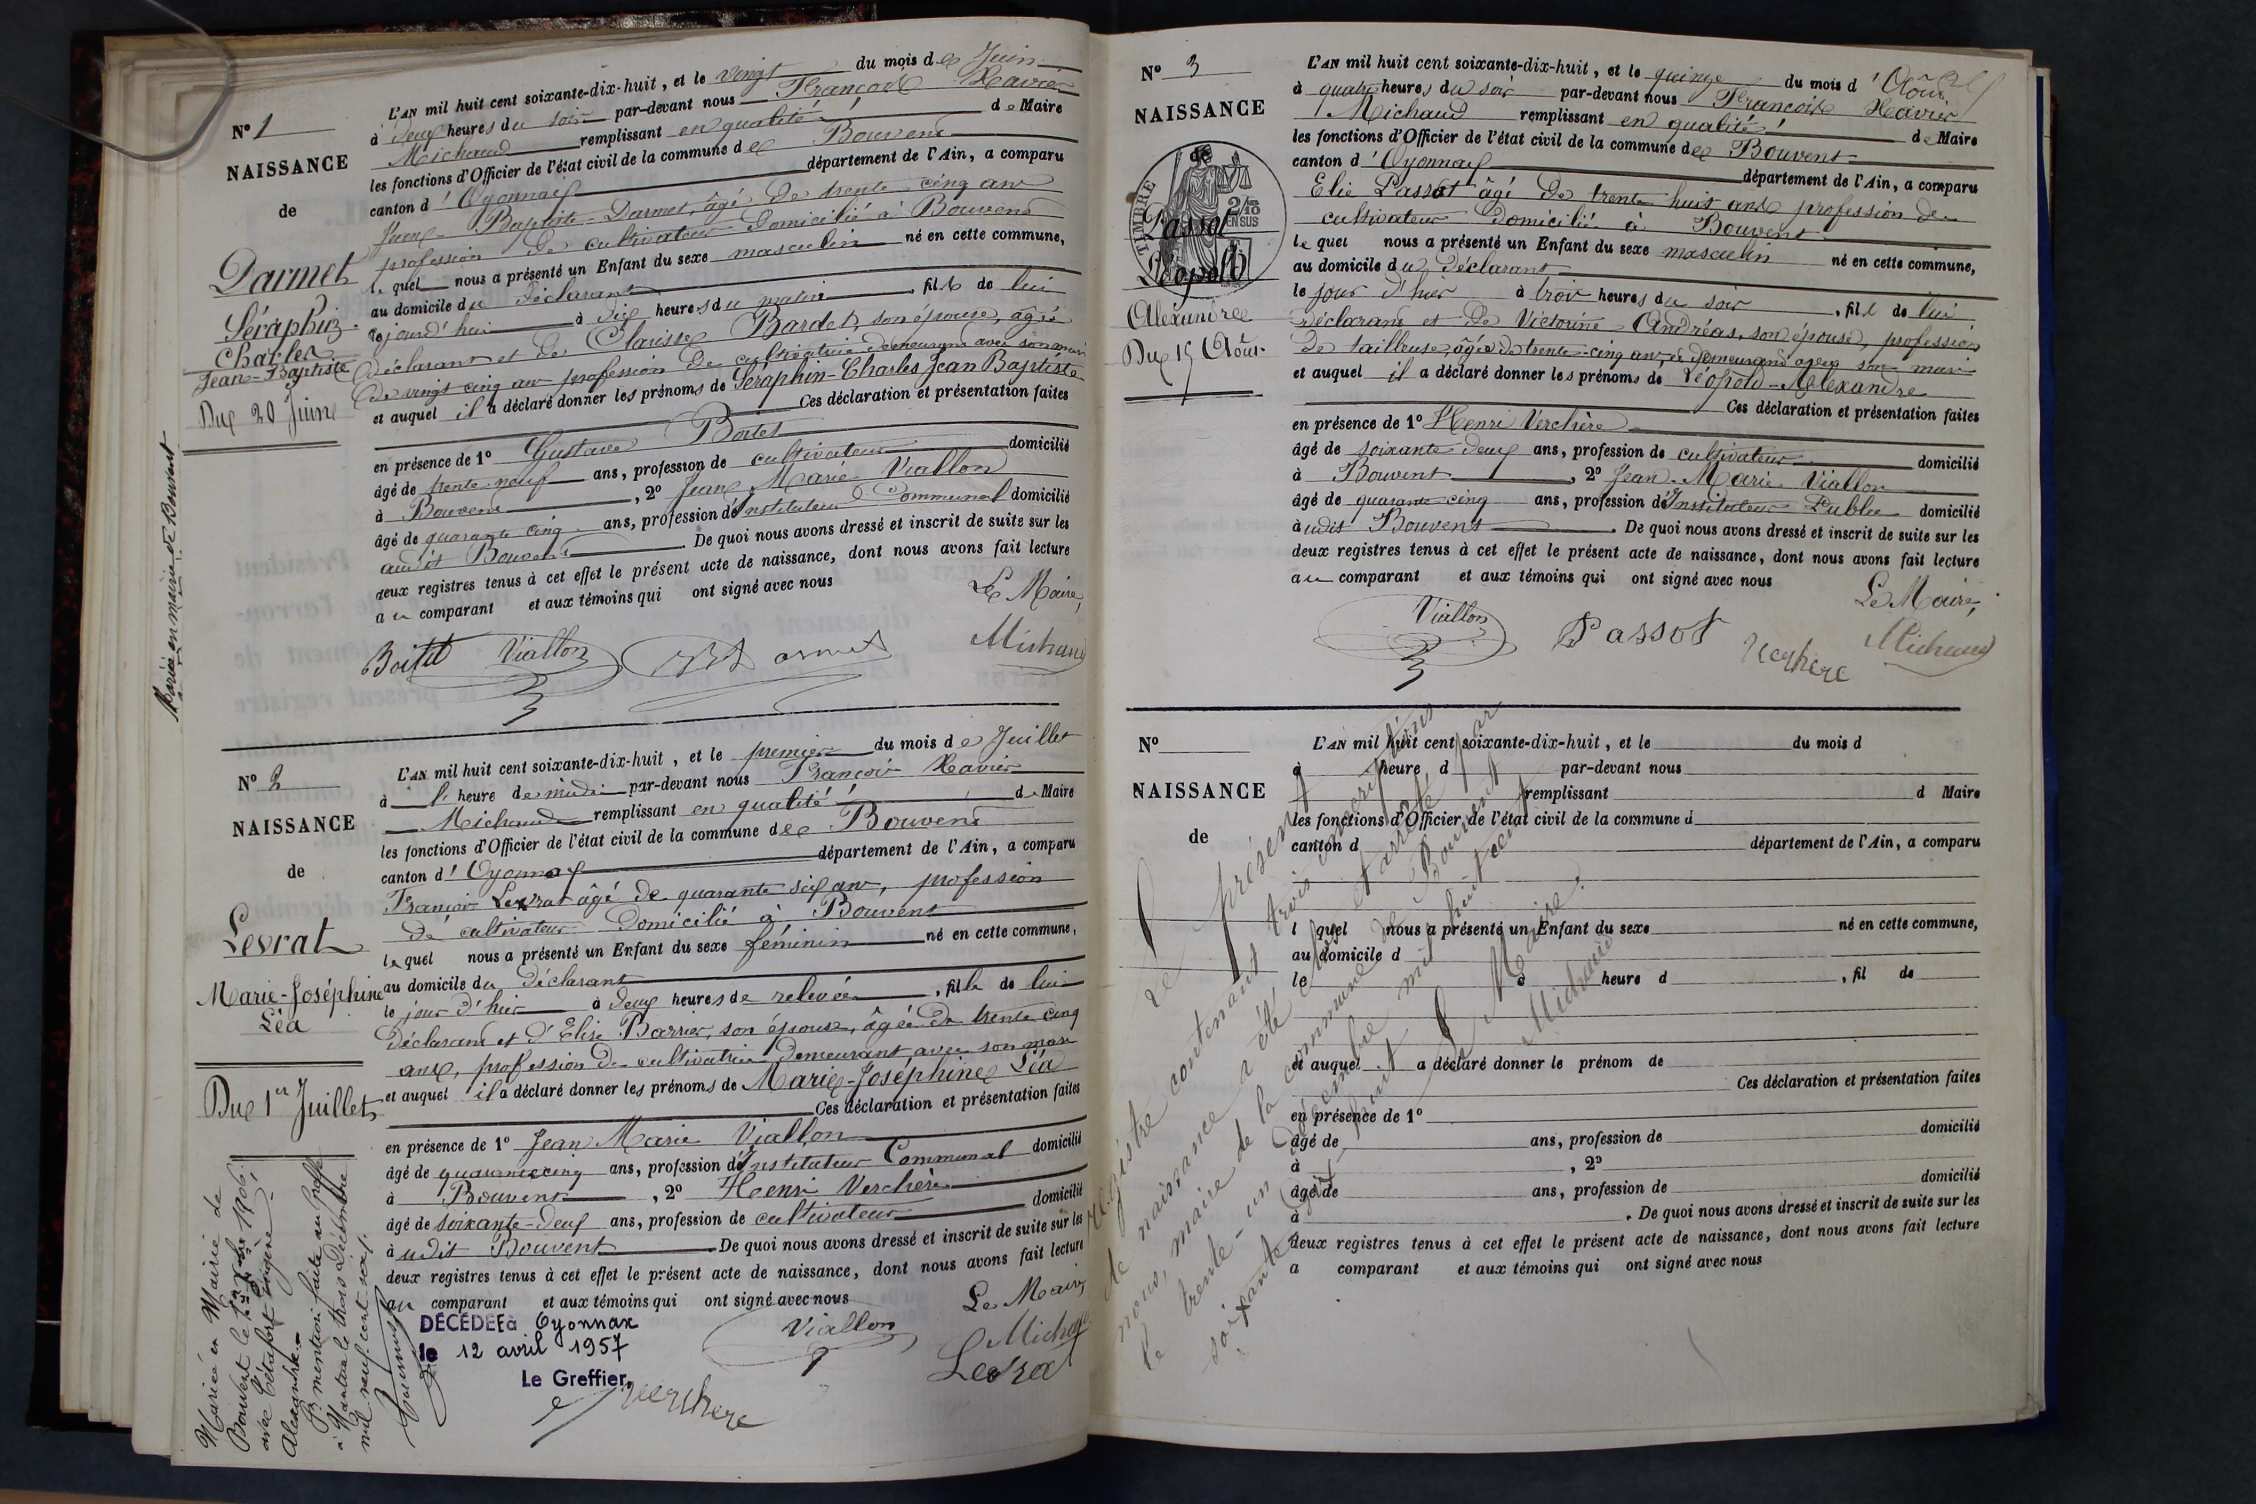 N° 1
NAISSANCE
de
Darmet
Séraphin
Charles
Jean-Baptiste
Du 20 Juin
L'AN mil huit cent soixante-dix-huit, et le vingt du mois de Juin
à deux heures du soir par-devant nous François Xavier
Michaud remplissant en qualité de Maire
les fonctions d'Officier de l'état civil de la commune de Bouvent
canton d'Oyonnax département de l'Ain, a comparu
Jean Baptiste Darmet, âgé de trente cinq ans
profession de cultivateur domicilié à Bouvent
lequel nous a présenté un Enfant du sexe masculin né en cette commune,
au domicile du déclarant
le jourd'hui à dix heures du matin, fils de lui
déclarant et de Clarisse Bardet, son épouse, âgée
de vingt cinq ans profession de cultivatrice demeurant avec son mari
et auquel il a déclaré donner les prénoms de Séraphin-Charles Jean Baptiste
Ces déclaration et présentation faites
en présence de 1° Gustave
âgé de trente-neuf ans, profession de cultivateur domicilié
à Bouvent, 2° Jean Marie Viallon
âgé de quarante cinq ans, profession d'Instituteur Communal domicilié
audit Bouvent. De quoi nous avons dressé et inscrit de suite sur les
deux registres tenus à cet effet le présent acte de naissance, dont nous avons fait lecture
au comparant et aux témoins qui ont signé avec nous
Le Maire,
Viallon Michaud
Mariée en mairie de Bouvent
N° 2
NAISSANCE
de
Levrat
Marie-Joséphine
Léa
Du 1er Juillet
L'AN mil huit cent soixante-dix-huit, et le premier du mois de Juillet
à l'heure de midi par-devant nous François Xavier
Michaud remplissant en qualité de Maire
les fonctions d'Officier de l'état civil de la commune de Bouvent
canton d'Oyonnax département de l'Ain, a comparu
François Levrat âgé de quarante six ans, profession
de cultivateur domicilié à Bouvent
lequel nous a présenté un Enfant du sexe féminin né en cette commune,
au domicile du déclarant
le jour d'hier à deux heures de relevée, fille de lui
déclarant et d'Elise Barrier, son épouse, âgée de trente cinq
ans, profession de cultivatrice demeurant avec son mari
et auquel il a déclaré donner les prénoms de Marie-Joséphine Léa
Ces déclaration et présentation faites
en présence de 1° Jean Marie Viallon
âgé de quarante cinq ans, profession d'Instituteur Communal domicilié
à Bouvent, 2° Henri Verchère
âgé de soixante-deux ans, profession de cultivateur domicilié
à udit Bouvent. De quoi nous avons dressé et inscrit de suite sur les
deux registres tenus à cet effet le présent acte de naissance, dont nous avons fait lecture
au comparant et aux témoins qui ont signé avec nous
Le Maire
Viallon Michaud
Levrat
Verchere
DÉCÉDÉE à Oyonnax
le 12 avril 1957
Le Greffier,
Mariée en Mairie de
Bouvent le 1906
avec
Alexandre.
mention faite au greffe
à Nantua le trois Décembre
mil neuf cent six.
N° 3
NAISSANCE
de
TIMBRE
2/10 EN SUS
Passot
Léopold
Alexandre
Du 15 Août
L'AN mil huit cent soixante-dix-huit, et le quinze du mois d'Août
à quatre heures du soir par-devant nous François Xavier
Michaud remplissant en qualité de Maire
les fonctions d'Officier de l'état civil de la commune de Bouvent
canton d'Oyonnax département de l'Ain, a comparu
Elie Passot âgé de trente huit ans profession de
cultivateur domicilié à Bouvent
lequel nous a présenté un Enfant du sexe masculin né en cette commune,
au domicile du déclarant
le jour d'hier à trois heures du soir, fils de lui
déclarant et de Victorine Andréas, son épouse, profession
de tailleuse, âgée de trente-cinq ans, demeurant avec son mari
et auquel il a déclaré donner les prénoms de Léopold-Alexandre
Ces déclaration et présentation faites
en présence de 1° Henri Verchère
âgé de soixante deux ans, profession de cultivateur domicilié
à Bouvent, 2° Jean-Marie Viallon
âgé de quarante cinq ans, profession d'Instituteur Public domicilié
à udit Bouvent. De quoi nous avons dressé et inscrit de suite sur les
deux registres tenus à cet effet le présent acte de naissance, dont nous avons fait lecture
au comparant et aux témoins qui ont signé avec nous
Le Maire,
Viallon Passot Verchere Michaud
N°
NAISSANCE
de
L'AN mil huit cent soixante-dix-huit, et le du mois d
à heure d par-devant nous
remplissant d Maire
les fonctions d'Officier de l'état civil de la commune d
canton d département de l'Ain, a comparu
l quel nous a présenté un Enfant du sexe né en cette commune,
au domicile d
le à heure d, fil de
et auquel a déclaré donner le prénom de
Ces déclaration et présentation faites
en présence de 1°
âgé de ans, profession de domicilié
à, 2°
âgé de ans, profession de domicilié
à. De quoi nous avons dressé et inscrit de suite sur les
deux registres tenus à cet effet le présent acte de naissance, dont nous avons fait lecture
a comparant et aux témoins qui ont signé avec nous
Le présent
registre contenant trois inscriptions
de naissance a été clos et arrêté par
nous, maire de la commune de Bouvent
le trente-un décembre mil huit cent
soixante-dix-huit
Le Maire.
Michaud